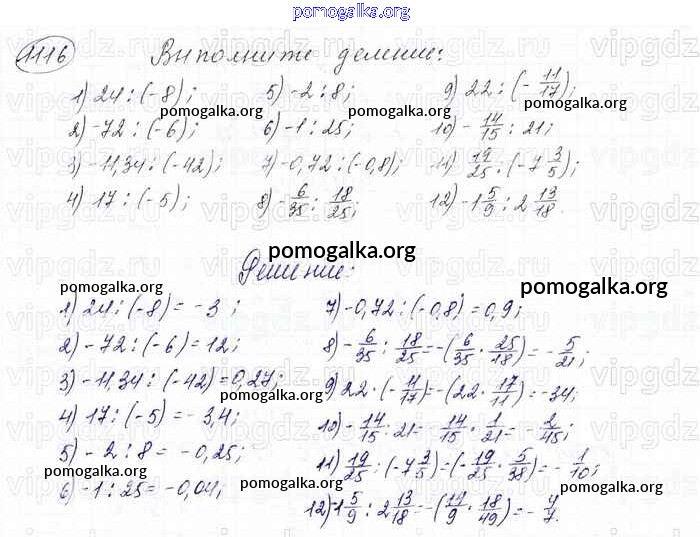 pomogalka.org
1116 Выполните деление:
1) 24 : (-8); 5) -2 : 8; 9) 22 : (-11/17);
2) -72 : (-6); 6) -1 : 25; 10) -14/15 : 21;
3) -11,34 : (-42); 7) -0,72 : (-0,8); 11) 19/25 : (-7 3/5);
4) 17 : (-5); 8) -6/35 : 18/25; 12) -1 5/9 : 2 13/18.
pomogalka.org
pomogalka.org
pomogalka.org
pomogalka.org
Решение:
pomogalka.org
1) 24 : (-8) = -3; 7) -0,72 : (-0,8) = 0,9;
2) -72 : (-6) = 12; 8) -6/35 : 18/25 = -(6/35 · 25/18) = -5/21;
3) -11,34 : (-42) = 0,27; 9) 22 · (-11/17) = -(22 · 17/11) = -34;
4) 17 : (-5) = -3,4; 10) -14/15 : 21 = -14/15 · 1/21 = -2/45;
5) -2 : 8 = -0,25; 11) 19/25 : (-7 3/5) = (-19/25 · 5/38) = -1/10;
6) -1 : 25 = -0,04; 12) -1 5/9 : 2 13/18 = -(14/9 · 18/49) = -4/7.
pomogalka.org
pomogalka.org
pomogalka.org
pomogalka.org
pomogalka.org
vipgdz